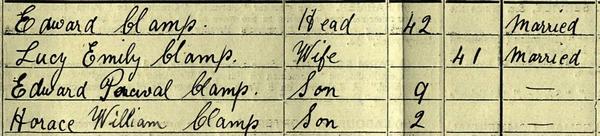 Edward Clamp. Head 42 Married
Lucy Emily Clamp. Wife 41 Married
Edward Percival Clamp. Son 9 —
Horace William Clamp Son 2 —